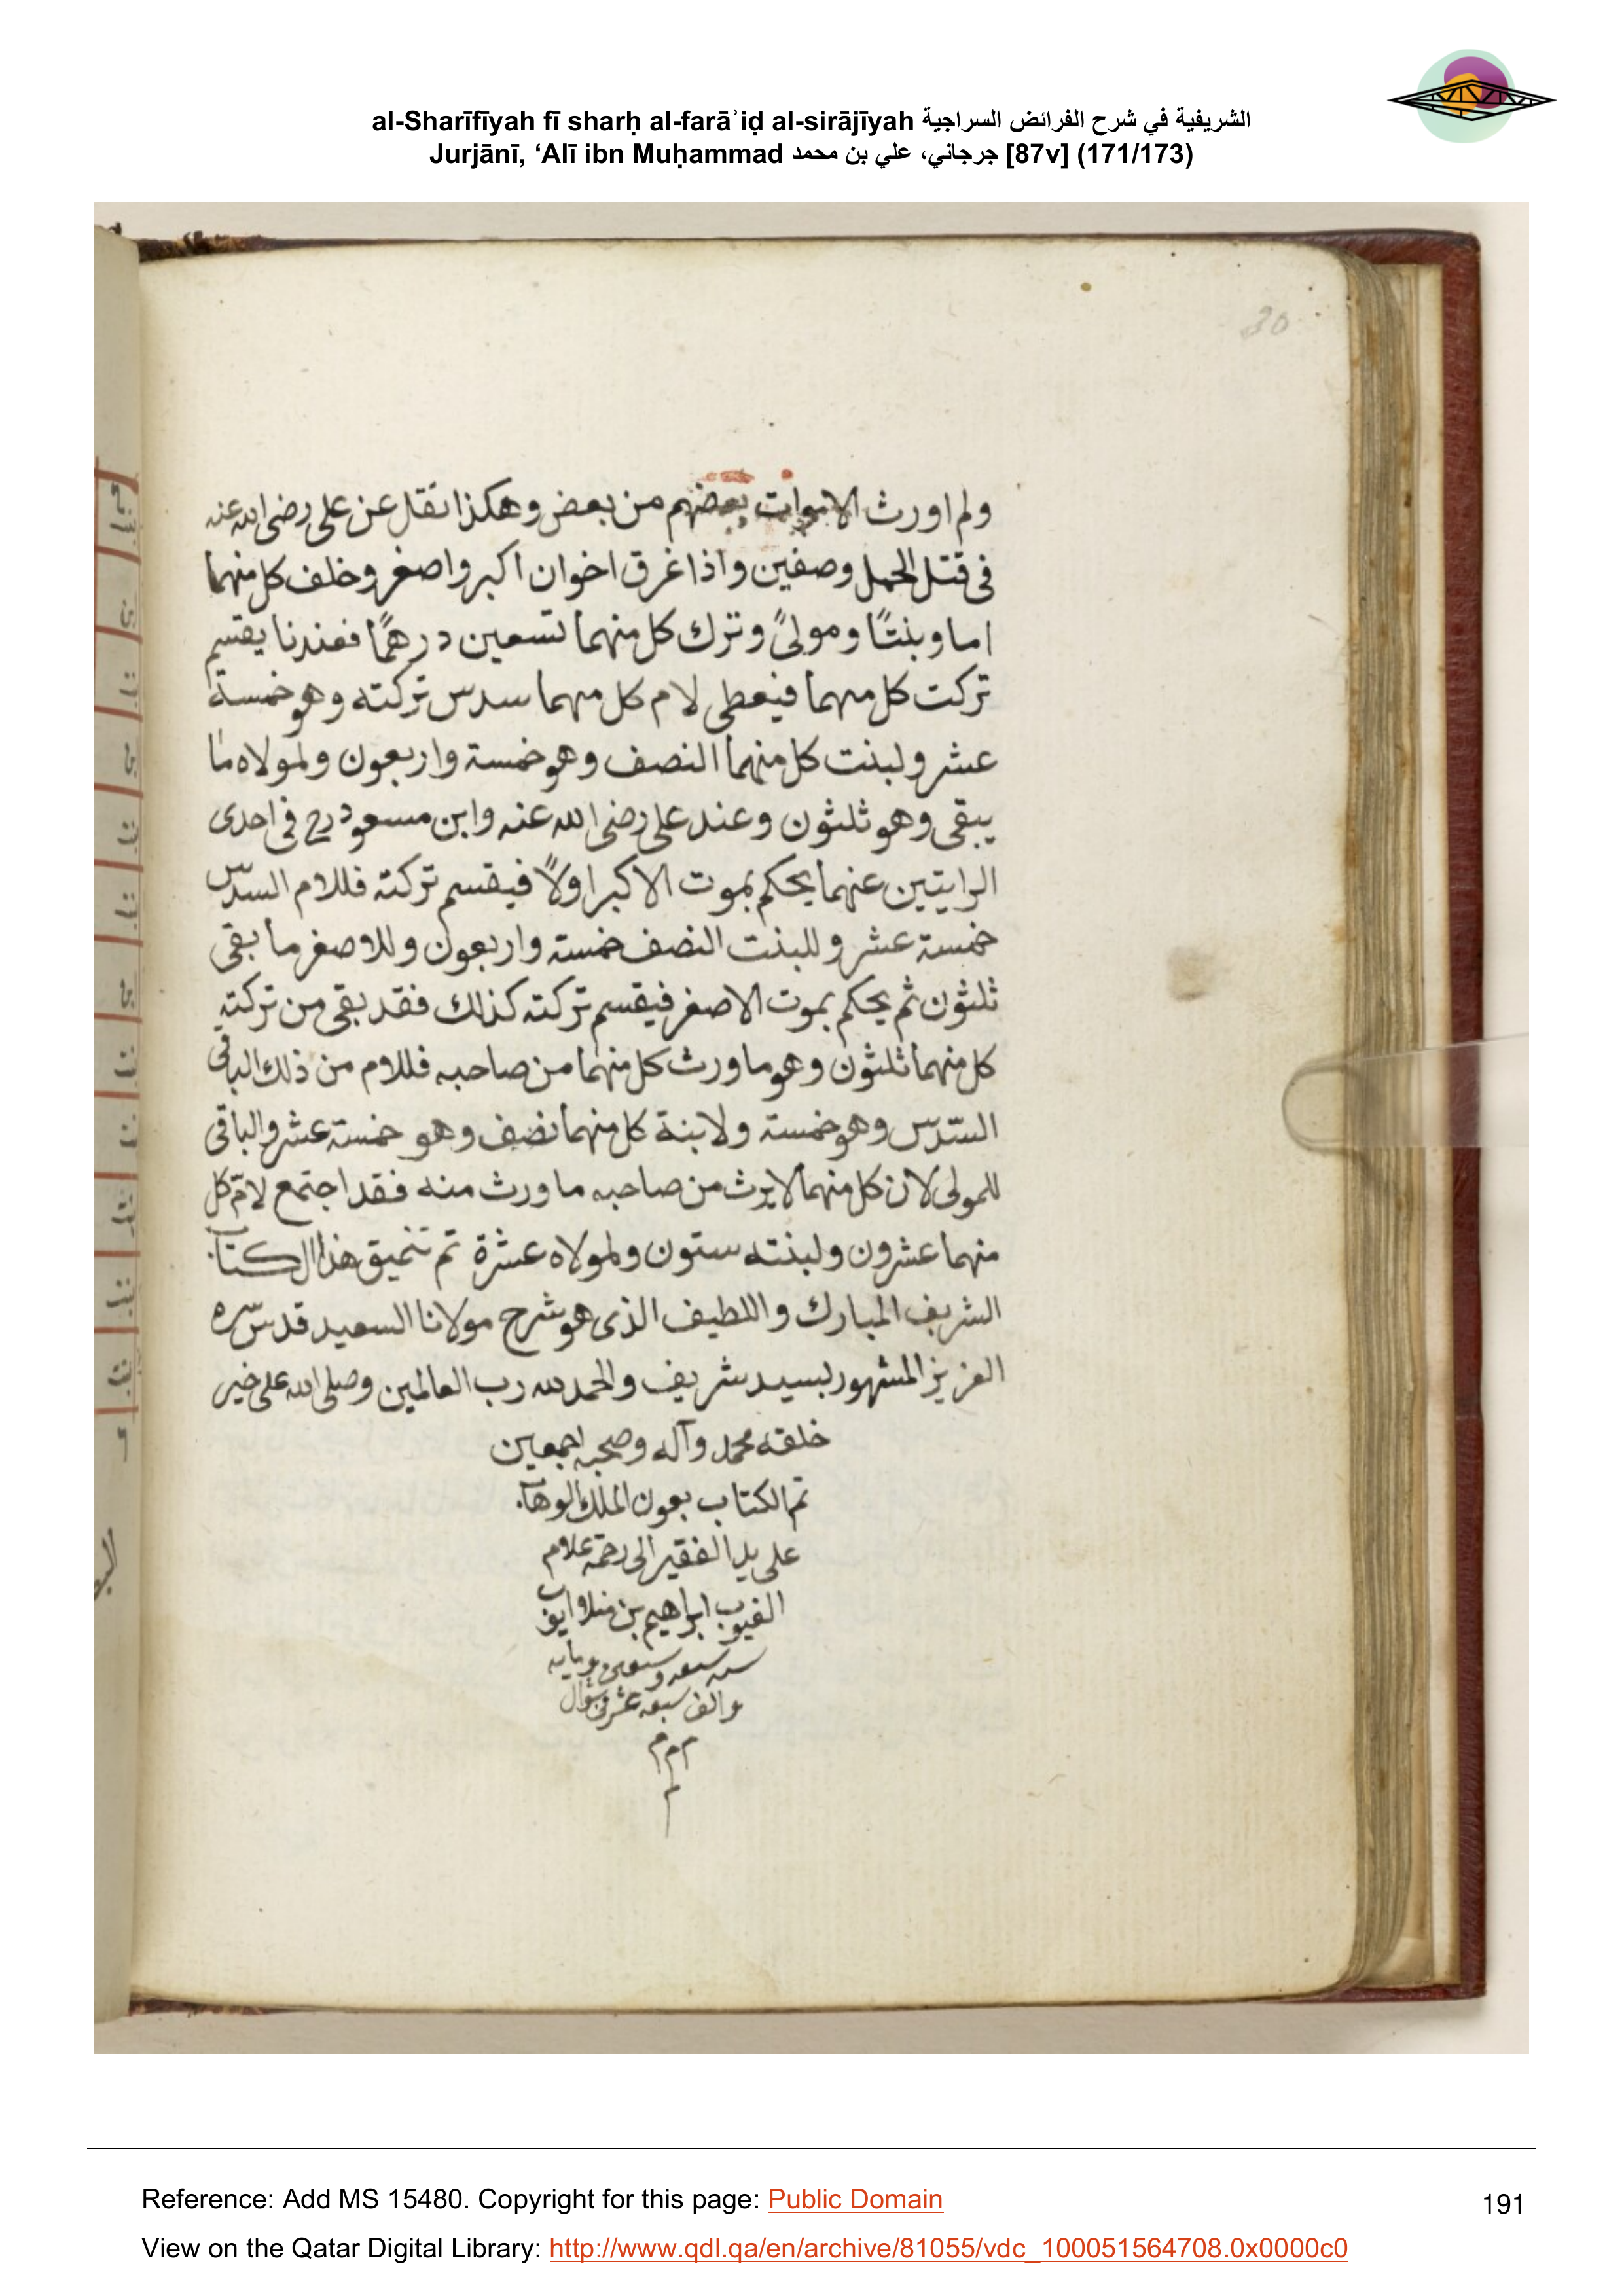 al-Sharīfīyah fī sharḥ al-farāʾiḍ al-sirājīyah الشريفية في شرح الفرائض السراجية
Jurjānī, ‘Alī ibn Muḥammad جرجاني، علي بن محمد [87v] (171/173)
30
ولم اورث الاموات بعضهم من بعض وهكذا نقل عن على رضى الله عنه
فى قتل الجمل وصفين واذا غرق اخوان اكبر واصغر وخلف كل منهما
اما وبنتًا ومولىً وترك كل منهما تسعين درهمًا فعندنا يقسم
تركت كل منهما فيعطى لام كل منهما سدس تركته وهو خمسة
عشر ولبنت كل منهما النصف وهو خمسة واربعون ولمولاه ما
يبقى وهو ثلثون وعند على رضى الله عنه وابن مسعود رح فى احدى
الرايتين عنهما يحكم بموت الاكبر اولاً فيقسم تركته فللام السدس
خمسة عشر وللبنت النصف خمسة واربعون وللاصغر ما بقى
ثلثون ثم يحكم بموت الاصغر فيقسم تركته كذلك فقد بقى من تركته
كل منهما ثلثون وهو ما ورث كل منهما من صاحبه فللام من ذلك الباقى
السّدس وهو خمسة ولابنة كل منهما نصف وهو خمسة عشر والباقى
للمولى لان كل منهما لا يرث من صاحبه ما ورث منه فقد اجتمع لامّ كل
منهما عشرون ولبنته ستون ولمولاه عشرة تم تنميق هذا الكتاب
الشريف المبارك واللطيف الذى هو شرح مولانا السعيد قدس سّره
العزيز المشهور بسيد شريف والحمد لله رب العالمين وصلى الله على خير
خلقه محمد وآله وصحبه اجمعين
تم الكتاب بعون الملك الوهاب
على يد الفقير الى رحمة علام
الغيوب ابراهيم بن منلا ايوب
سنه سبعه وسبعين ومايه
والف سبعه عشر شوال
م م م
م
Reference: Add MS 15480. Copyright for this page: Public Domain
191
View on the Qatar Digital Library: http://www.qdl.qa/en/archive/81055/vdc_100051564708.0x0000c0